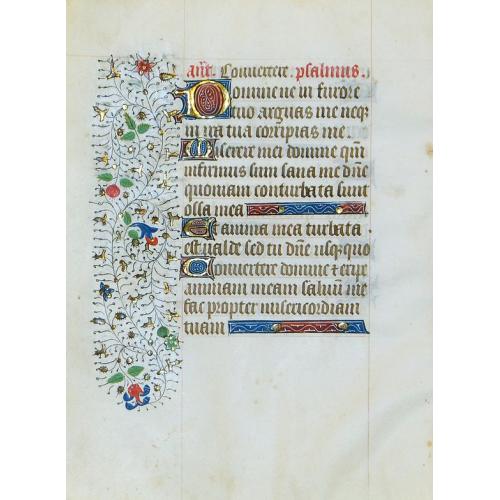 Ant. Convertere. psalmus.
Domine ne in furore
tuo arguas me neq
in ira tua corripias me.
Miserere mei domine qm
infirmus sum sana me dne
quoniam conturbata sunt
ossa mea
Et anima mea turbata
est valde sed tu dne usq quo
Convertere domine ⁊ eripe
animam meam salvum me
fac propter misericordiam
tuam